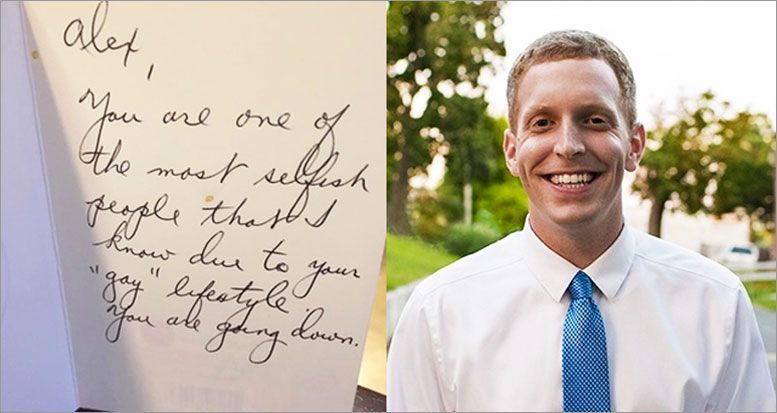 Alex,
You are one of
the most selfish
people that I
know due to your
"gay" lifestyle.
You are going down.